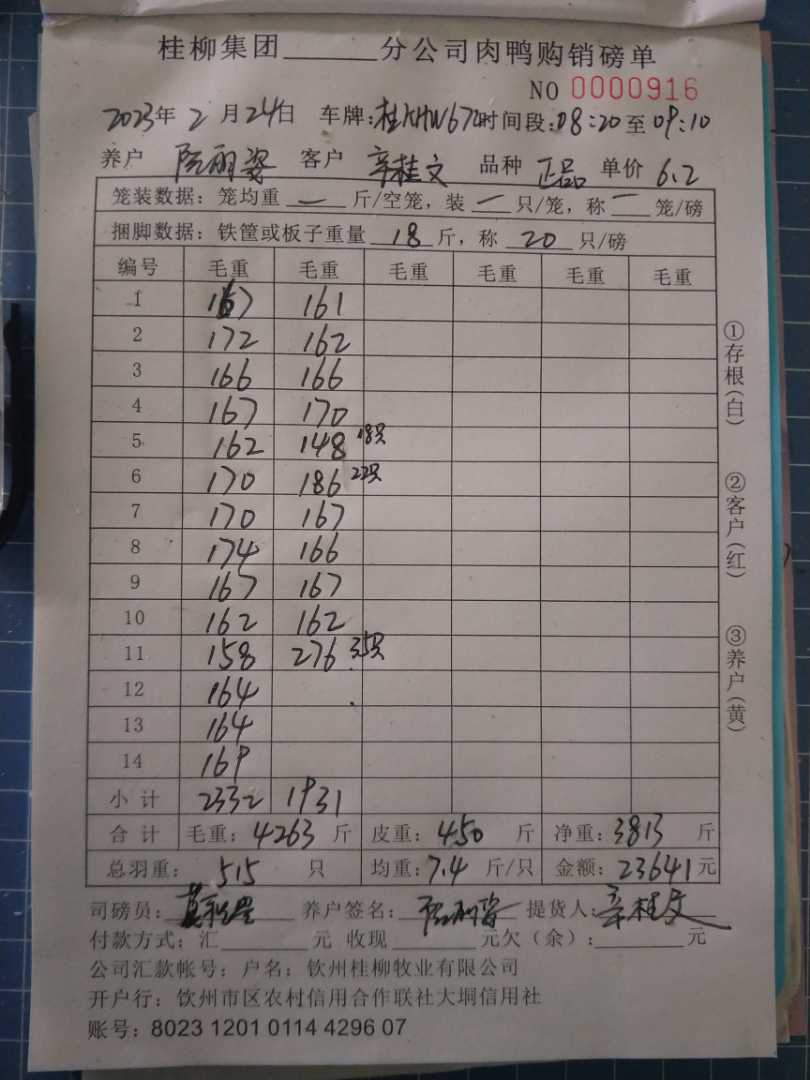 桂柳集团______分公司肉鸭购销磅单
NO 0000916
2023年 2 月 24日 车牌:桂KHW672 时间段:08:20至09:10
养户 阮丽姿 客户 辛桂文 品种 正品 单价 6.2
笼装数据:笼均重 一 斤/空笼,装 一 只/笼,称 一 笼/磅
捆脚数据:铁筐或板子重量 18 斤,称 20 只/磅
编号 毛重 毛重 毛重 毛重 毛重 毛重
1 167 161
2 172 162
3 166 166
4 167 170
5 162 148 18只
6 170 186 22只
7 170 167
8 174 166
9 167 167
10 162 162
11 158 276 35只
12 164
13 164
14 169
小计 2332 1931
合计 毛重:4263 斤 皮重:450 斤 净重:3813 斤
总羽重: 515 只 均重:7.4 斤/只 金额:23641元
司磅员: 养户签名:阮丽姿 提货人:辛桂文
付款方式:汇______元 收现______元欠(余):______元
公司汇款帐号:户名:钦州桂柳牧业有限公司
开户行:钦州市区农村信用合作联社大垌信用社
账号:8023 1201 0114 4296 07
①存根(白)
②客户(红)
③养户(黄)